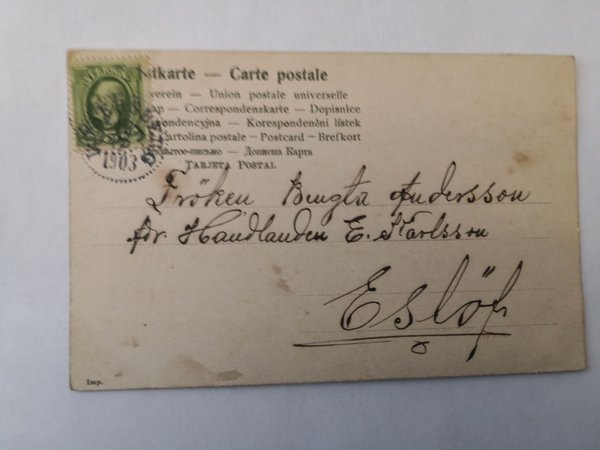 stkarte — Carte postale
verein — Union postale universelle
ap — Correspondenzkarte — Dopisnice
pondencyjna — Korespondenční listek
Cartolina postale — Postcard — Brefkort
ытое-письмо — Дописна Карта
TARJETA POSTAL
1903
Fröken Bengta Andersson
för. Handlanden E. Karlsson
Eslöf
Imp.